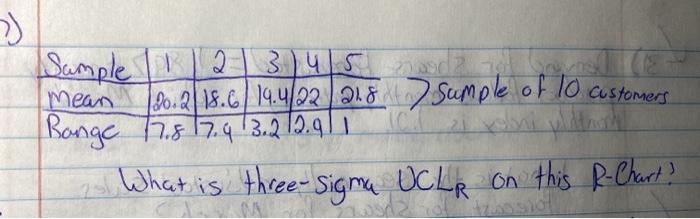 2)
Sample | 1 | 2 | 3 | 4 | 5
Mean | 20.2 | 18.6 | 19.4 | 22 | 21.8 > Sample of 10 customers
Range | 7.8 | 7.9 | 3.2 | 2.9 | 1
What is three-sigma UCLR on this R-Chart?